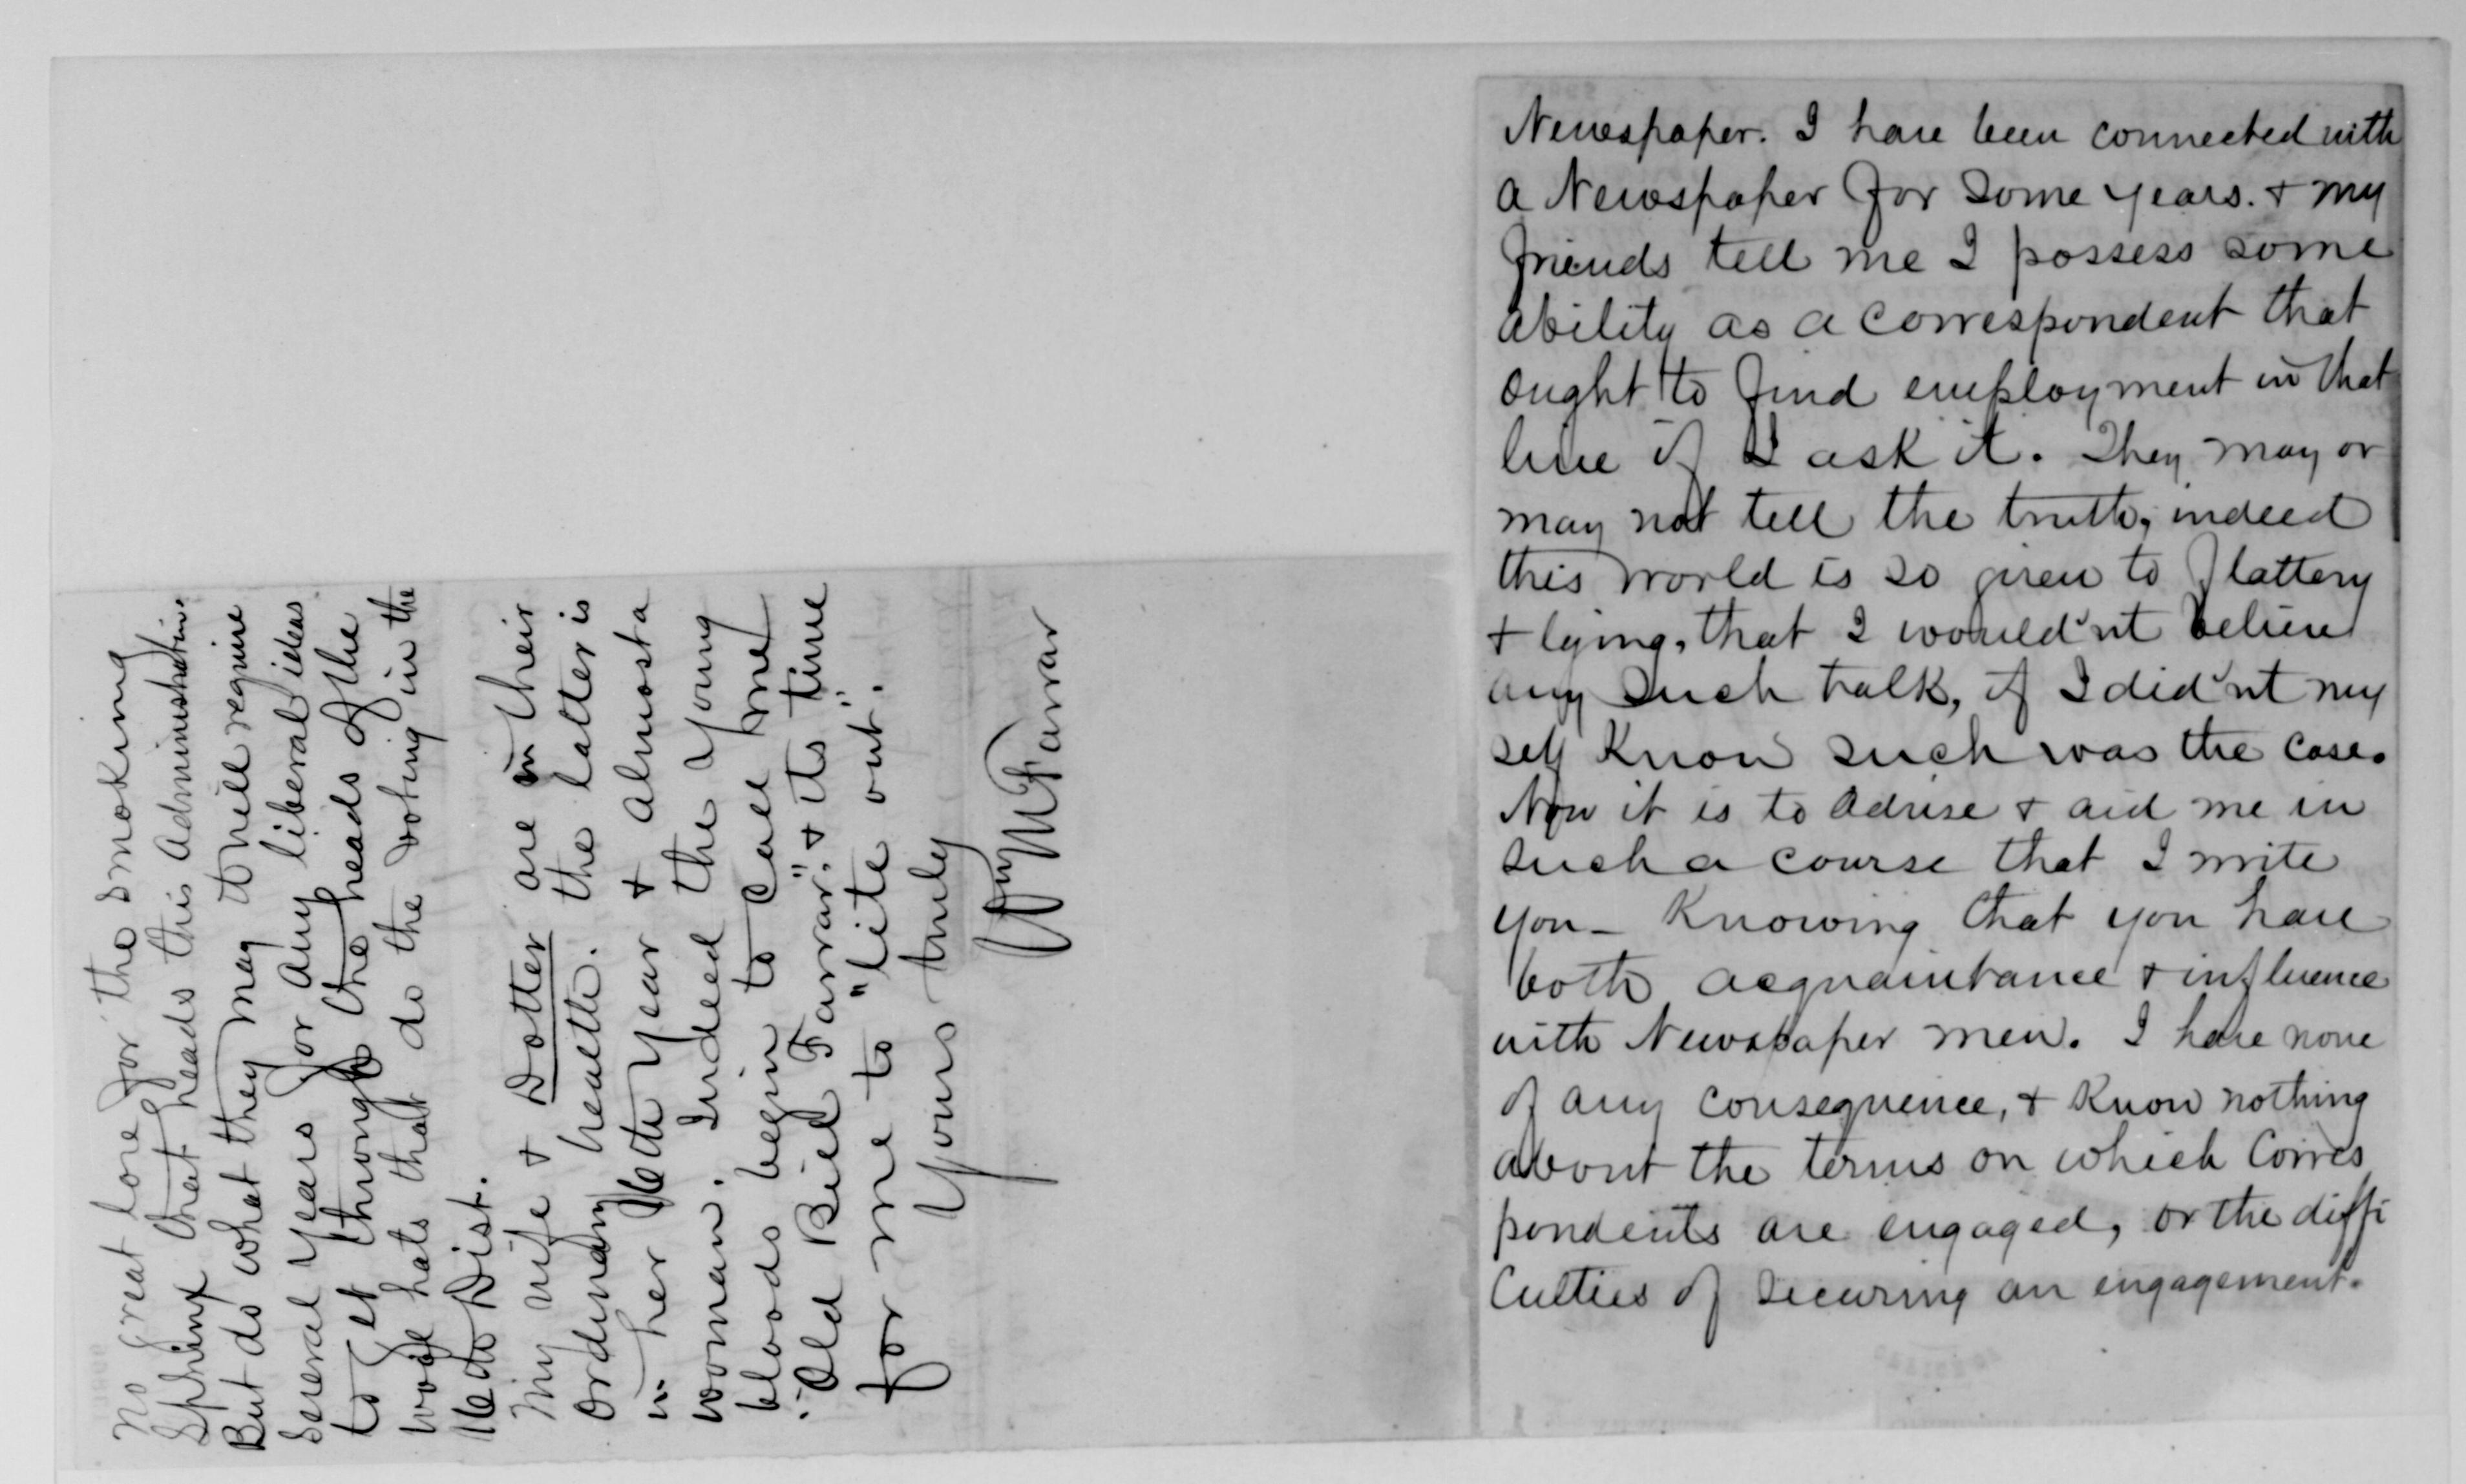 no great love for the smoking
Sphinx that heads this Administratin.
But do what they may it will require
several years for any liberal ideas
to get through the heads of the
wool hats that do the voting in the
16th Dist.
My wife & Dotter are in their
ordinary health. the latter is
in her 16th year & almost a
woman. Indeed the young
bloods begin to call me
"Old Bill Farrar," & its time
for me to "lite out".
Yours truly
Wm M Farrar
Newspaper. I have been connected with
a Newspaper for some years. & my
friends tell me I possess some
ability as a correspondent that
ought to find employment in that
line if I ask it. They may or
may not tell the truth, indeed
this world is so given to flattery
& lying, that I would'nt believe
any such talk, if I did'nt my
self know such was the case.
Now it is to advise & aid me in
such a course that I write
you – Knowing that you have
both acquaintance & influence
with Newspaper men. I have none
of any consequence, & know nothing
about the terms on which Corres
pondents are engaged, or the diffi
culties of securing an engagement.